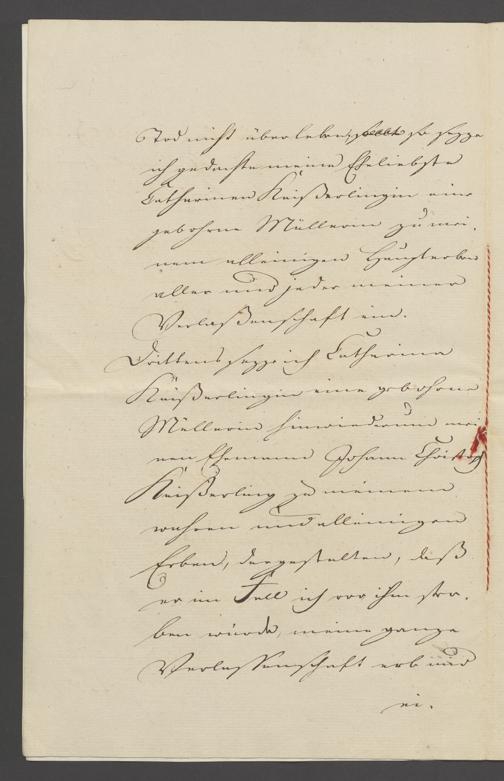 Tod nicht überleben, so setze
ich gedachte meine Eheliebste
Catharinen Keißerlingin eine
gebohrne Müllerin zu mei-
nem alleinigen Haupterben
aller und jeder meiner
Verlaßenschaft ein.
Drittens setze ich Catharina
Keißerlingin eine gebohrne
Müllerin hinwiederum mei
nen Ehemann Johann Christoph
Keißerling zu meinem
wahren und alleinigen
Erben, dergestalten, daß
er im Fall ich vor ihm ster-
ben würde, meine ganze
Verlassenschaft erb und
ei-